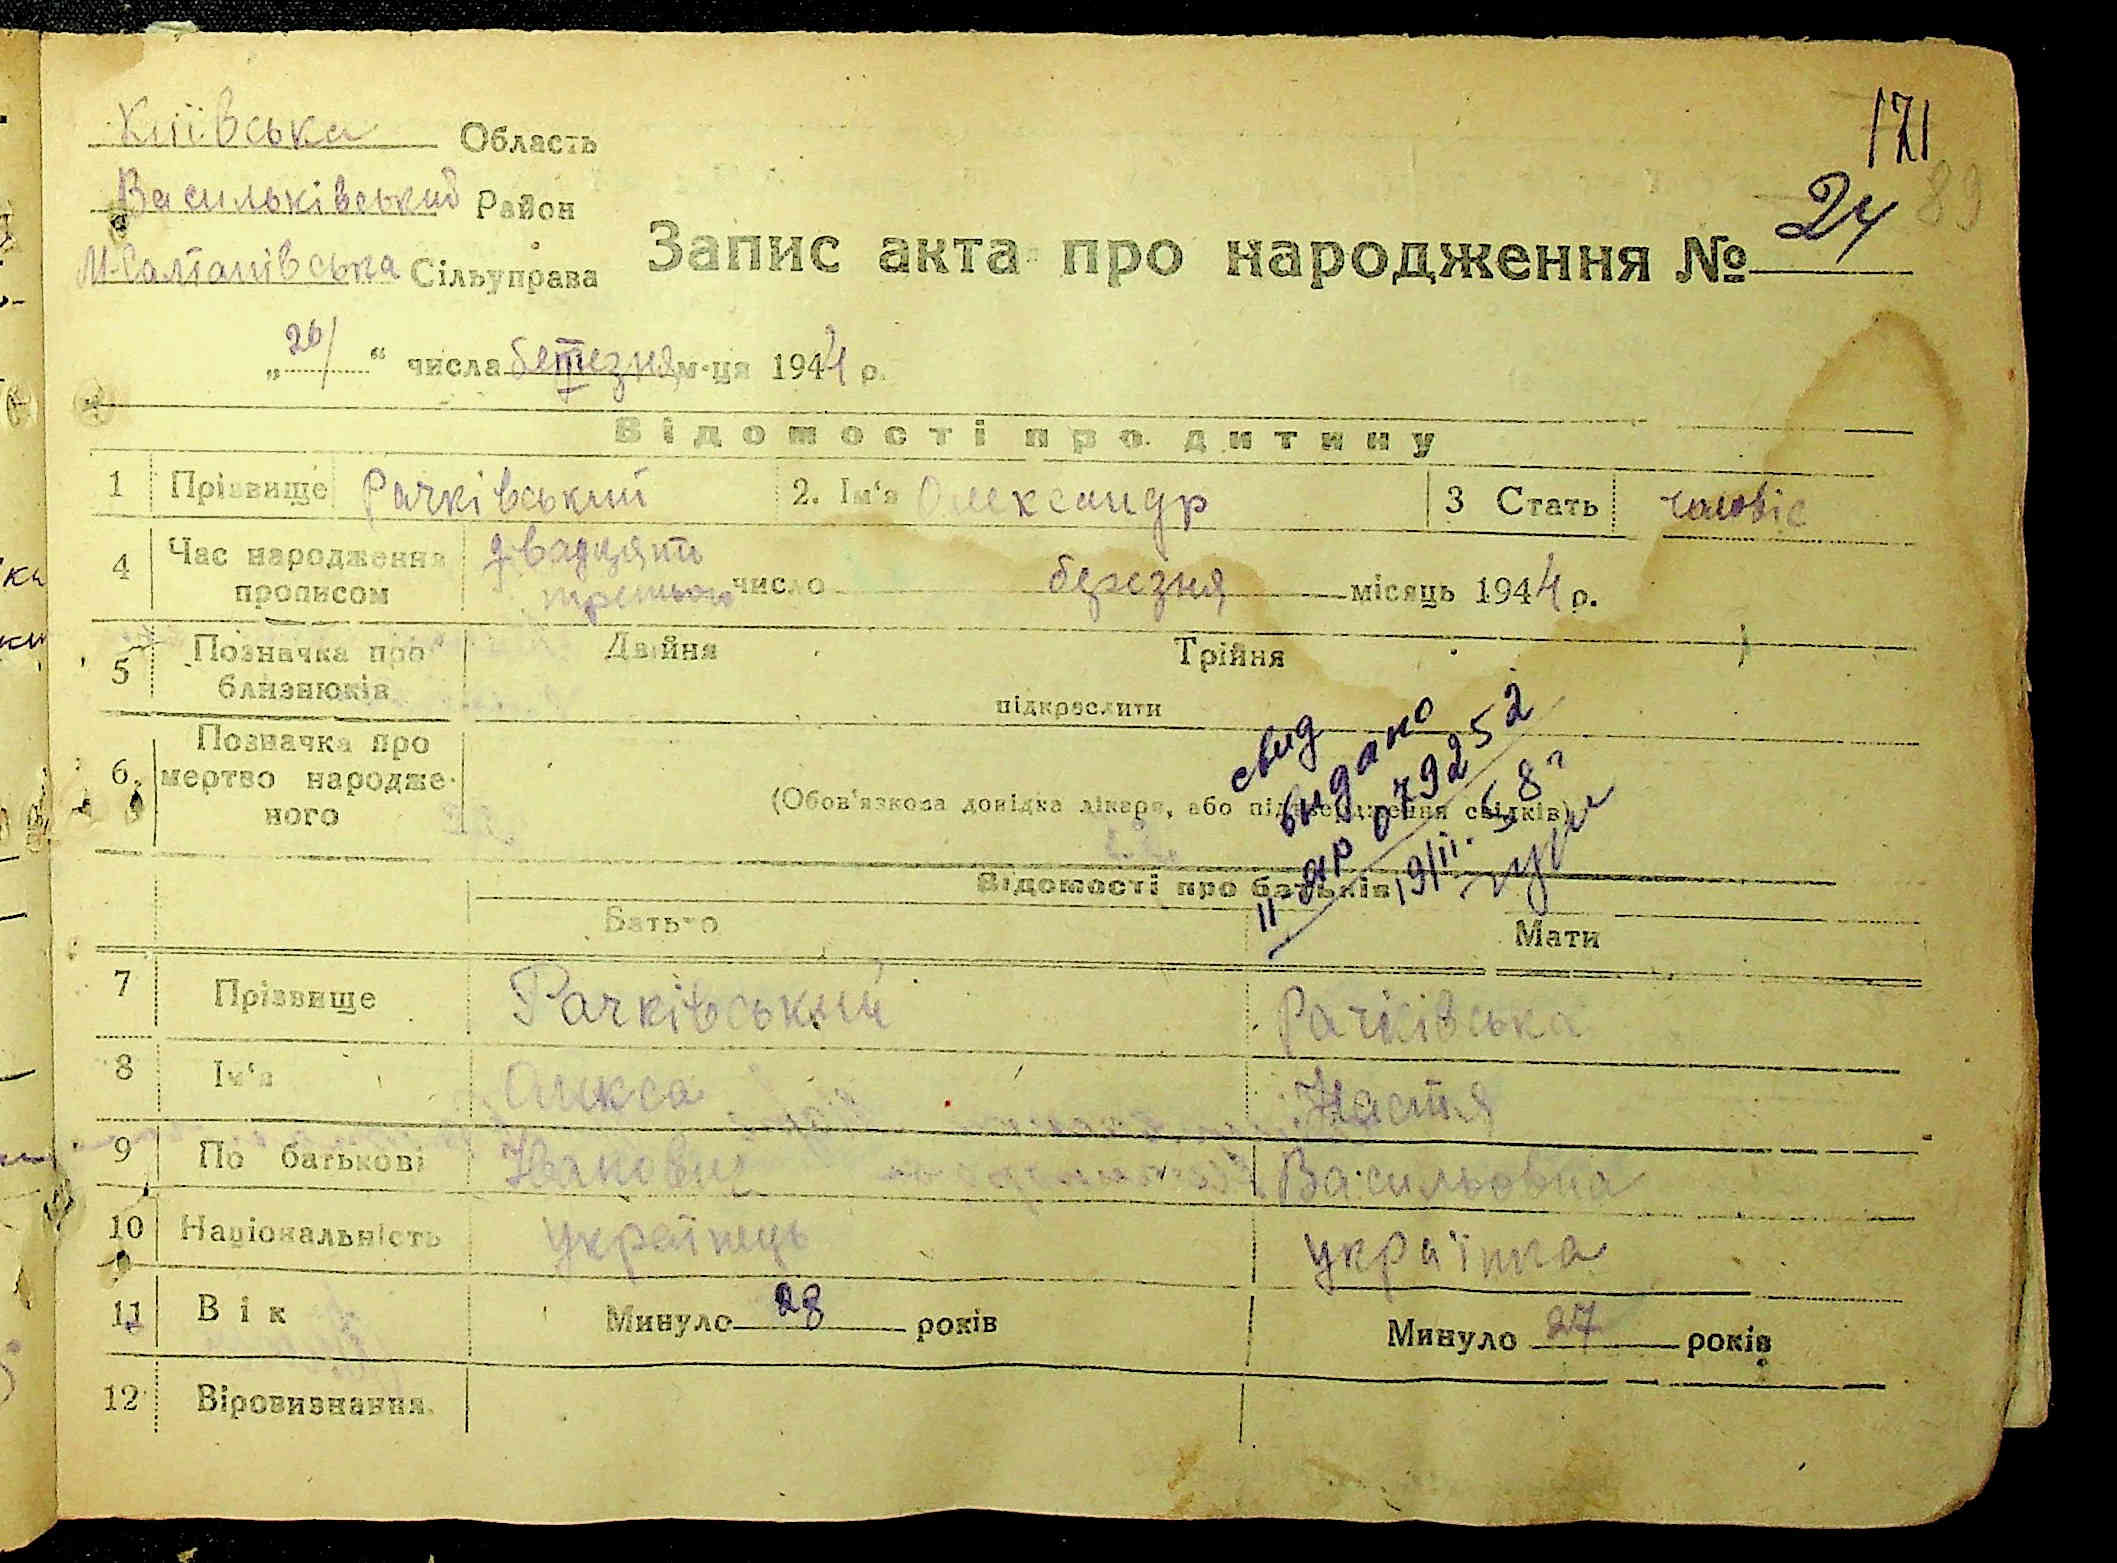 171
89
Київська Область
Васильківський Район
М-Салтанівська Сільуправа
Запис акта про народження № 24
„26/“ числа березня м-ця 1944 р.
Відомості про дитину
1 Прізвище Рачківський 2. Ім‘я Олександр 3 Стать чоловіс
4 Час народження прописом двадцять третього число березня місяць 1944 р.
5 Позначка про близнюків Двійня Трійня
підкреслити
6. Позначка про мертво народженого
(Обов'язкова довідка лікаря, або підтвердження свідків)
свид
видано
II-яр 0792252
19/II. 58г
Відомості про батьків
Батько Мати
7 Прізвище Рачківський Рачківська
8 Ім‘я Олекса Настя
9 По батькові Іванович Васильовна
10 Національність українець українка
11 Вік Минуло 28 років Минуло 27 років
12 Віровизнання